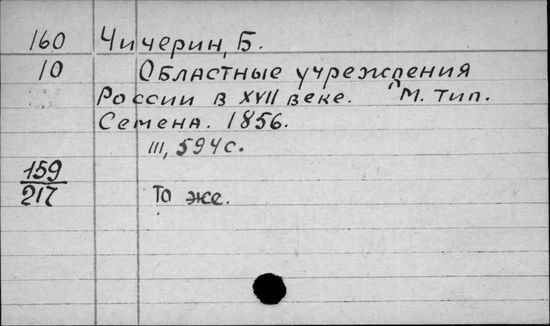 160 Чичерин, Б.
10 Областные учреждения
России в XVII веке. М. Тип.
Семена. 1856.
III, 594 с.
159
217 То же.